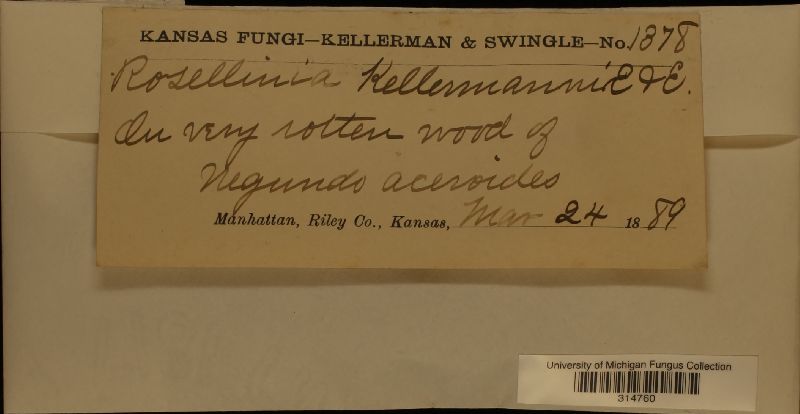 KANSAS FUNGI—KELLERMAN & SWINGLE—No. 1378
Rosellinia Kellermanni E & E.
On very rotten wood of
Negundo aceroides
Manhattan, Riley Co., Kansas, Mar 24 1889
University of Michigan Fungus Collection
314760